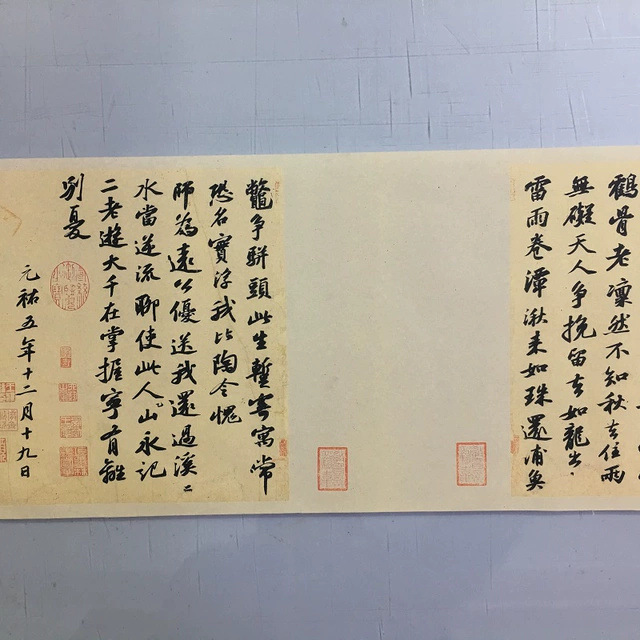 鶴骨老凜然不知秋去住兩
無礙天人争挽留去如龍出
雷雨卷潭湫来如珠還浦奐
鼈争駢頭此生暫寄寓常
恐名實浮我比陶令愧
師為遠公優送我還過溪〻
水當逆流聊使此人山永記
二老遊大千在掌握寧有離
別憂
元祐五年十二月十九日